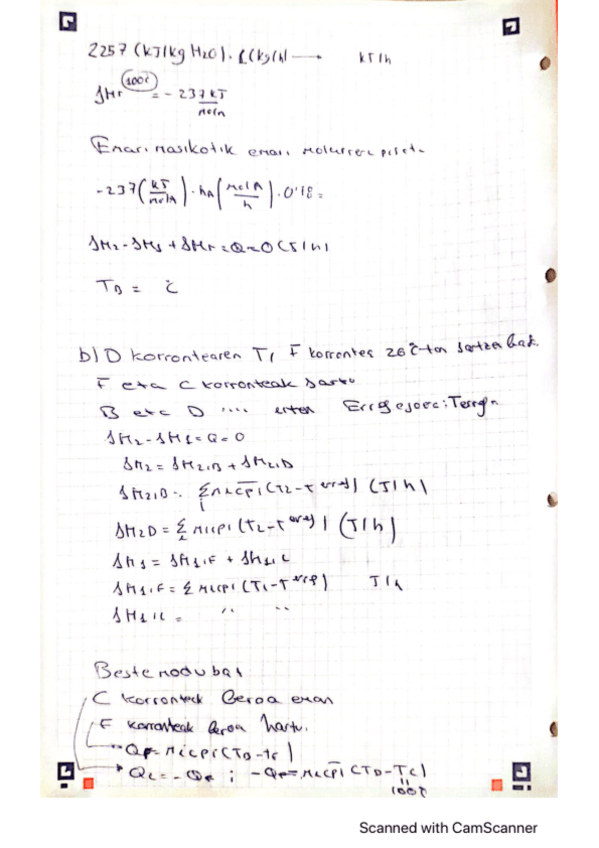 2257 (kJ/kg H2O). 1(kg/h) → kJ/h
ΔHr 100ºC = - 237 kJ/molA
Eman. masikotik eman. molarrera
-237 (kJ/molA) · hA (molA/h) · 0'18 =
ΔH2 - ΔH1 + ΔHr = Q = 0 (J/h)
TB = ºC
b) D korrontearen T, F korrontea 26ºC-tan sartzen bada.
F eta C korronteak sartu
B eta D .... irten
ΔH2 - ΔH1 = Q = 0
ΔH2 = ΔH2,B + ΔH2,D
ΔH2,B = Σ ni cpi (T2 - T erref) (J/h)
ΔH2D = Σ ni cpi (T2 - T erref) (J/h)
ΔH1 = ΔH1,F + ΔH1,C
ΔH1,F = Σ ni cpi (T1 - T erref) J/h
ΔH1,C = " "
Beste modu bat
C korronteak beroa eman
F korronteak beroa hartu.
QF = ni cpi (TD - TF)
QC = - QF ; - QF = ni cpi (TD - TC)
100ºC
Scanned with CamScanner